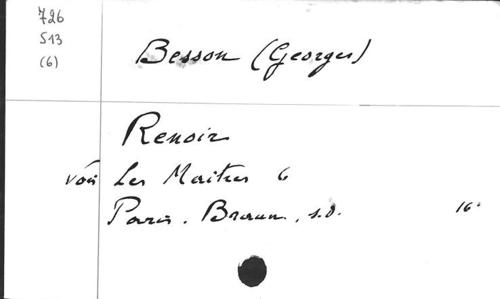 726
513
(6)
Besson (Georges)
Renoir
voir Les Maitres 6
Paris. Braun, s.d. 16°